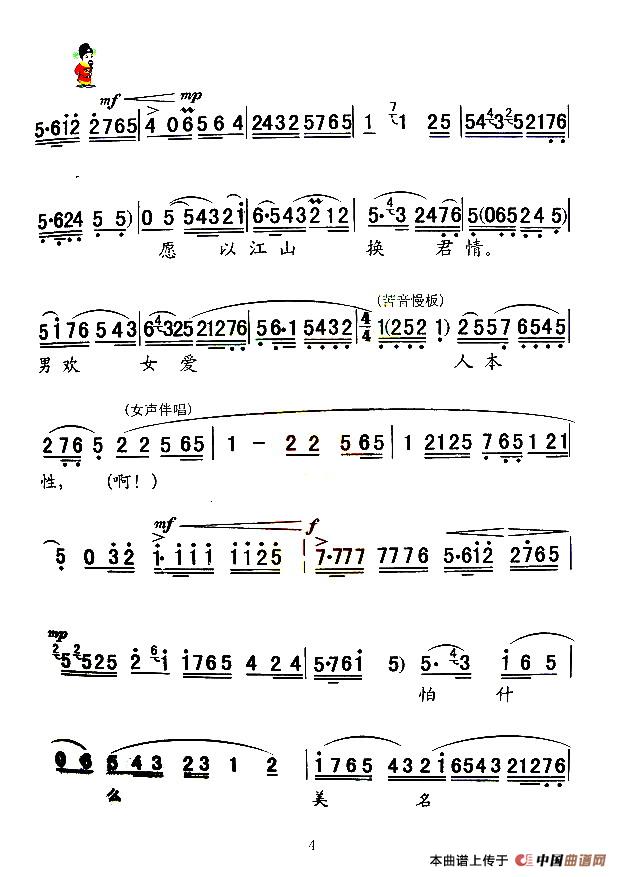 mf mp
5·6i2 2765 4 06564 2432 5765 1 7 1 25 54 4 3 2 52176
5·624 5 5) 05 54321 6·543 212 5· 4 3 2476 5(065245)
愿 以江山 换 君情。
(苦音慢板)
5176 543 6 4 325 21276 56·1 5432 4/4 1(252 1) 2557 6545
男欢 女爱 人本
(女声伴唱)
276 5 2 2 5 65 1 - 22 565 1 2125 765 121
性, (啊!)
mf f
5 0 32 i· iii ii25 7·777 7776 5·6i2 2765
mp
2 5 2 525 2 6 i i765 4 24 5·761 5) 5· 4 3 i 65
怕 什
06 543 23 1 2 i765 432i 6543 21276
么 美 名
4
本曲谱上传于 中国曲谱网